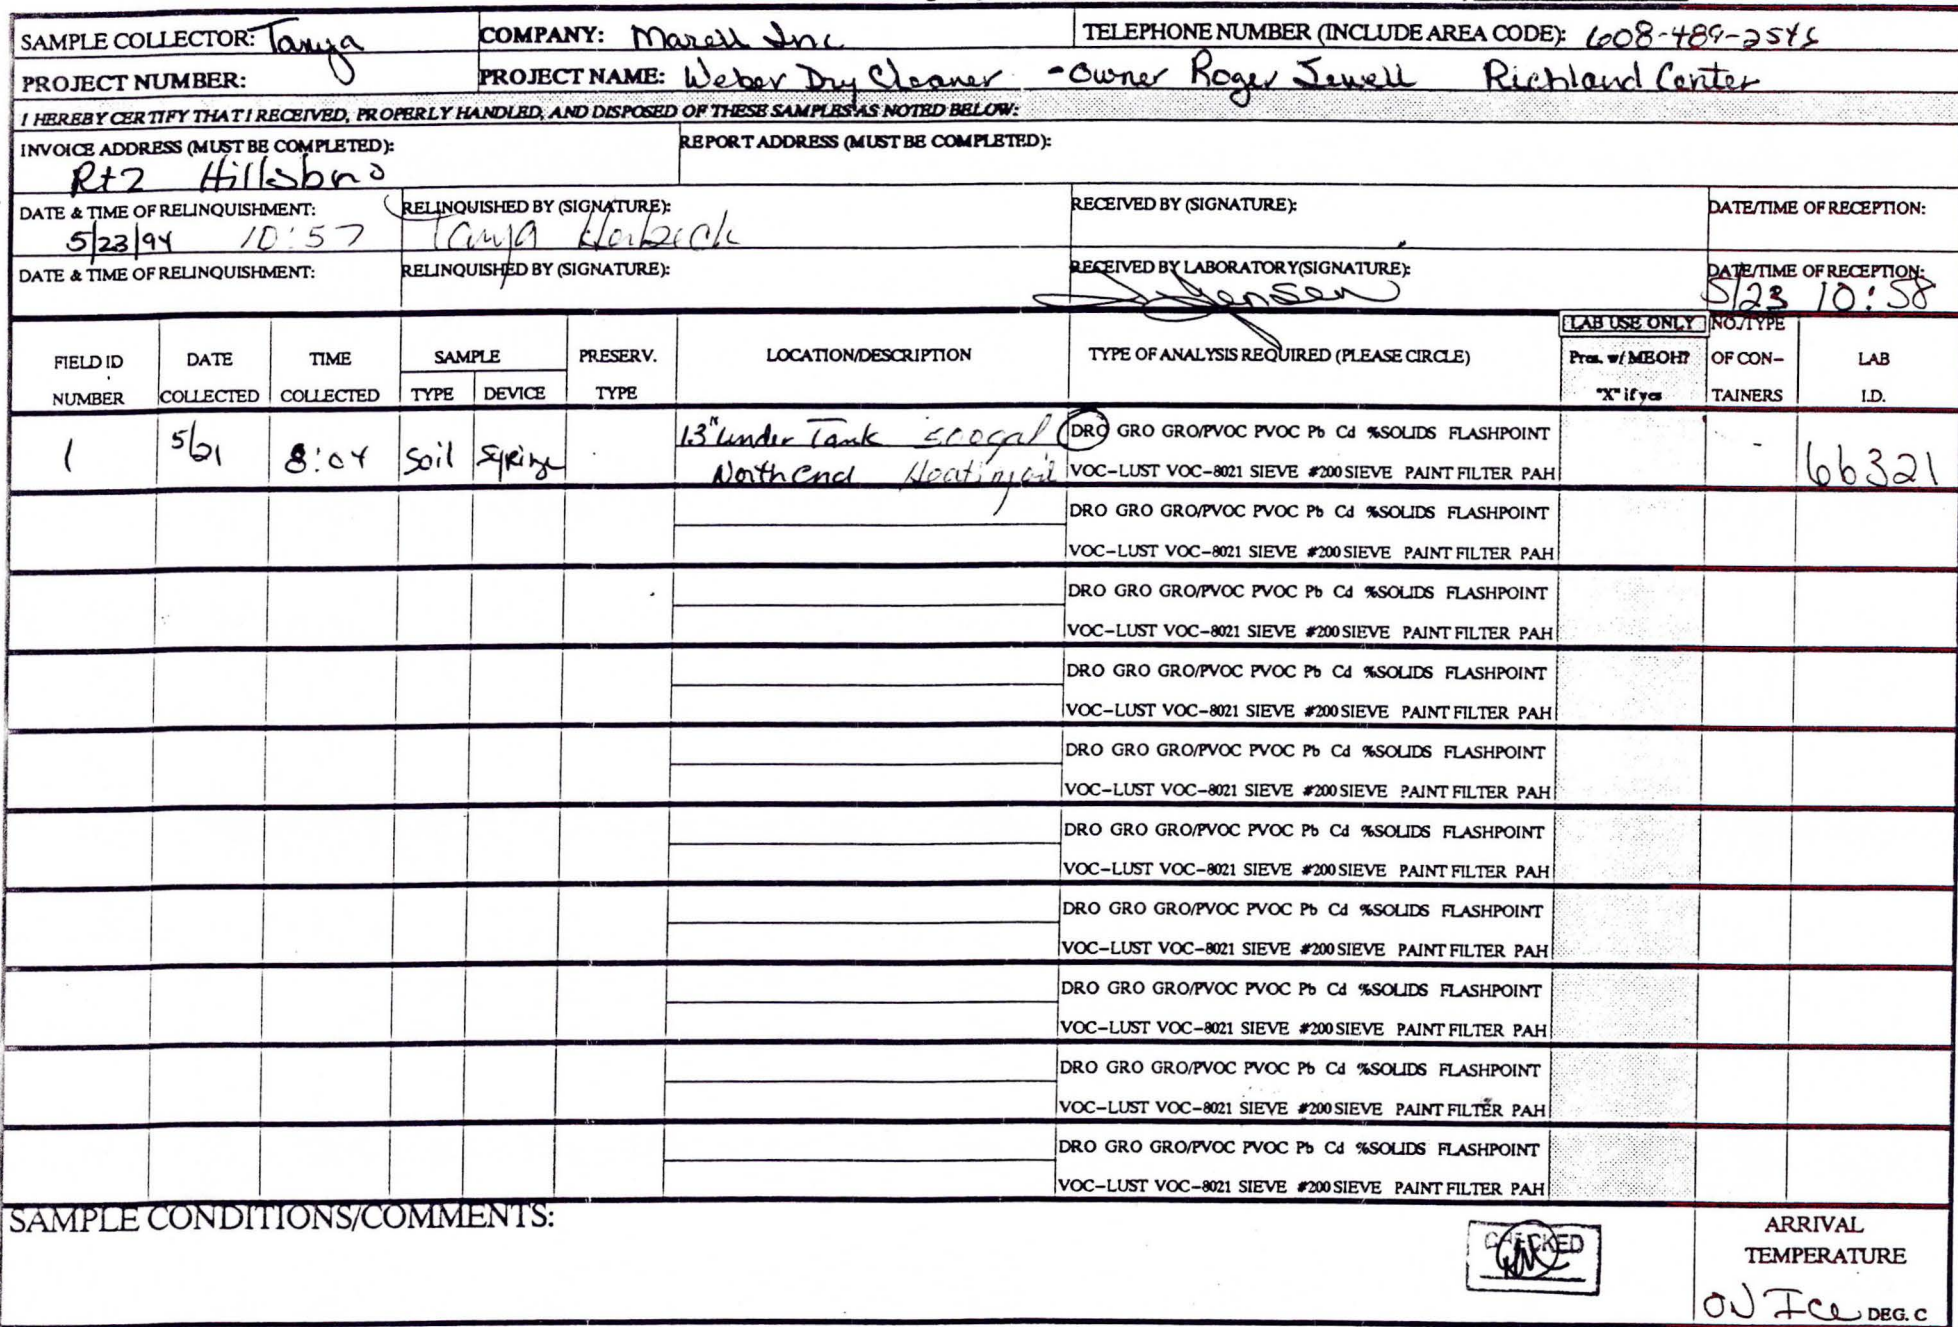 SAMPLE COLLECTOR: Tanya COMPANY: Marell Inc TELEPHONE NUMBER (INCLUDE AREA CODE):
PROJECT NUMBER: PROJECT NAME: Weber Dry Cleaner - Owner Roger Jewell Richland Center
I HEREBY CERTIFY THAT I RECEIVED, PROPERLY HANDLED, AND DISPOSED OF THESE SAMPLES AS NOTED BELOW:
INVOICE ADDRESS (MUST BE COMPLETED): REPORT ADDRESS (MUST BE COMPLETED):
Rt2 Hillsboro
DATE & TIME OF RELINQUISHMENT: RELINQUISHED BY (SIGNATURE): RECEIVED BY (SIGNATURE): DATE/TIME OF RECEPTION:
5/23/94 10:57 Tanya
DATE & TIME OF RELINQUISHMENT: RELINQUISHED BY (SIGNATURE): RECEIVED BY LABORATORY(SIGNATURE): DATE/TIME OF RECEPTION:
Jensen 5/23 10:58
LAB USE ONLY NO./TYPE
FIELD ID DATE TIME SAMPLE PRESERV. LOCATION/DESCRIPTION TYPE OF ANALYSIS REQUIRED (PLEASE CIRCLE) Pres. w/ MEOH? OF CON- LAB
NUMBER COLLECTED COLLECTED TYPE DEVICE TYPE "X" if yes TAINERS I.D.
13" under Tank DRO GRO GRO/PVOC PVOC Pb Cd %SOLIDS FLASHPOINT
1 5/21 8:04 Soil Syringe North end Heating oil VOC-LUST VOC-8021 SIEVE #200 SIEVE PAINT FILTER PAH 66321
DRO GRO GRO/PVOC PVOC Pb Cd %SOLIDS FLASHPOINT
VOC-LUST VOC-8021 SIEVE #200 SIEVE PAINT FILTER PAH
DRO GRO GRO/PVOC PVOC Pb Cd %SOLIDS FLASHPOINT
VOC-LUST VOC-8021 SIEVE #200 SIEVE PAINT FILTER PAH
DRO GRO GRO/PVOC PVOC Pb Cd %SOLIDS FLASHPOINT
VOC-LUST VOC-8021 SIEVE #200 SIEVE PAINT FILTER PAH
DRO GRO GRO/PVOC PVOC Pb Cd %SOLIDS FLASHPOINT
VOC-LUST VOC-8021 SIEVE #200 SIEVE PAINT FILTER PAH
DRO GRO GRO/PVOC PVOC Pb Cd %SOLIDS FLASHPOINT
VOC-LUST VOC-8021 SIEVE #200 SIEVE PAINT FILTER PAH
DRO GRO GRO/PVOC PVOC Pb Cd %SOLIDS FLASHPOINT
VOC-LUST VOC-8021 SIEVE #200 SIEVE PAINT FILTER PAH
DRO GRO GRO/PVOC PVOC Pb Cd %SOLIDS FLASHPOINT
VOC-LUST VOC-8021 SIEVE #200 SIEVE PAINT FILTER PAH
DRO GRO GRO/PVOC PVOC Pb Cd %SOLIDS FLASHPOINT
VOC-LUST VOC-8021 SIEVE #200 SIEVE PAINT FILTER PAH
DRO GRO GRO/PVOC PVOC Pb Cd %SOLIDS FLASHPOINT
VOC-LUST VOC-8021 SIEVE #200 SIEVE PAINT FILTER PAH
SAMPLE CONDITIONS/COMMENTS:
CHECKED
ARRIVAL
TEMPERATURE
ON Ice DEG. C